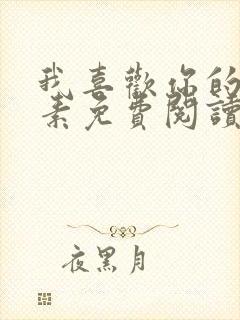 我喜歡你的
素免費閱讀
夜黑月